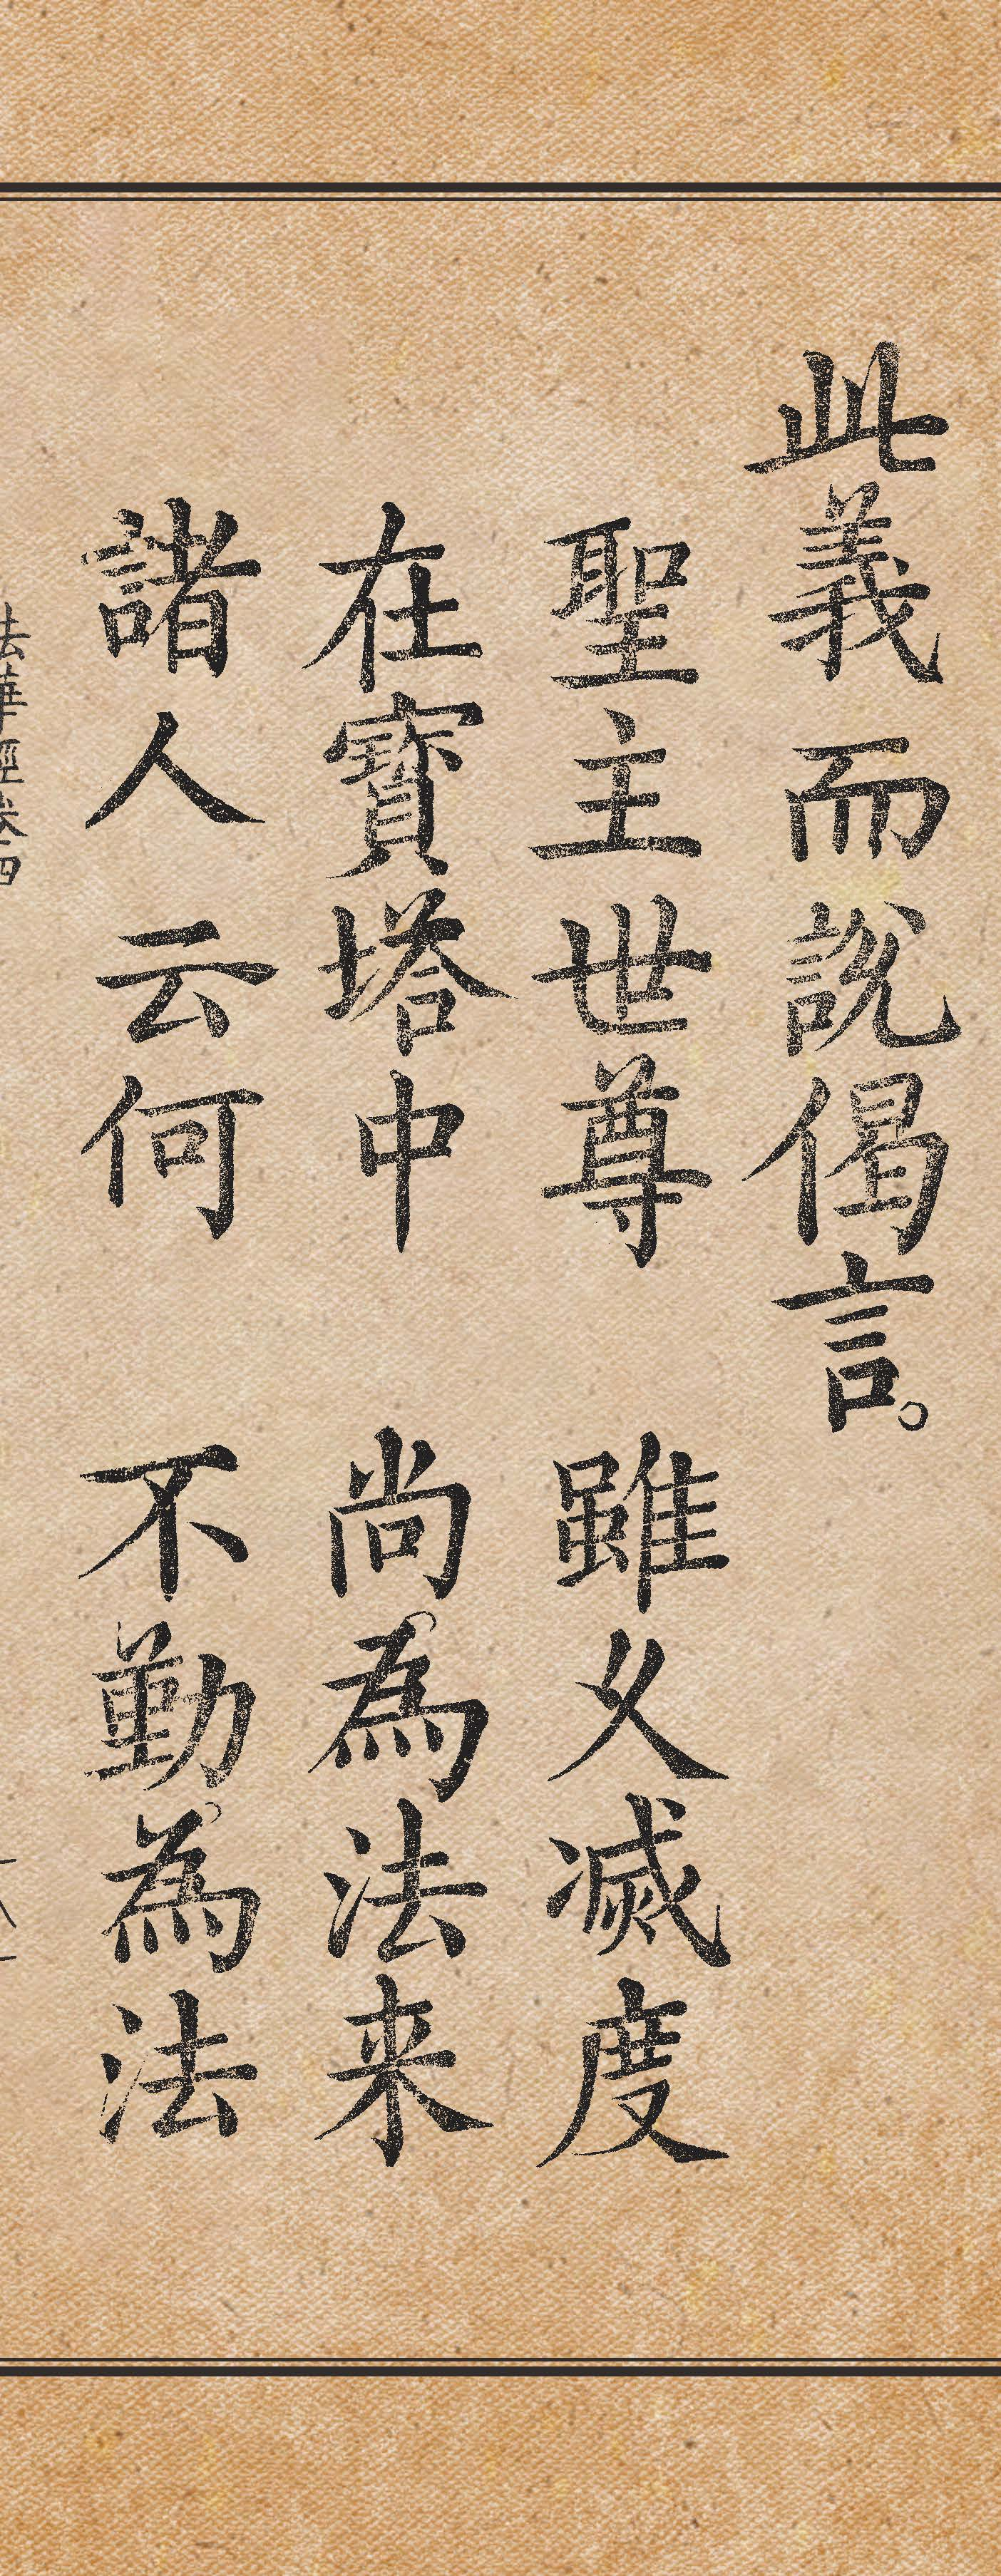 此義而說偈言。
聖主世尊　雖久滅度
在寶塔中　尚為法来
諸人云何　不勤為法
法華經卷四